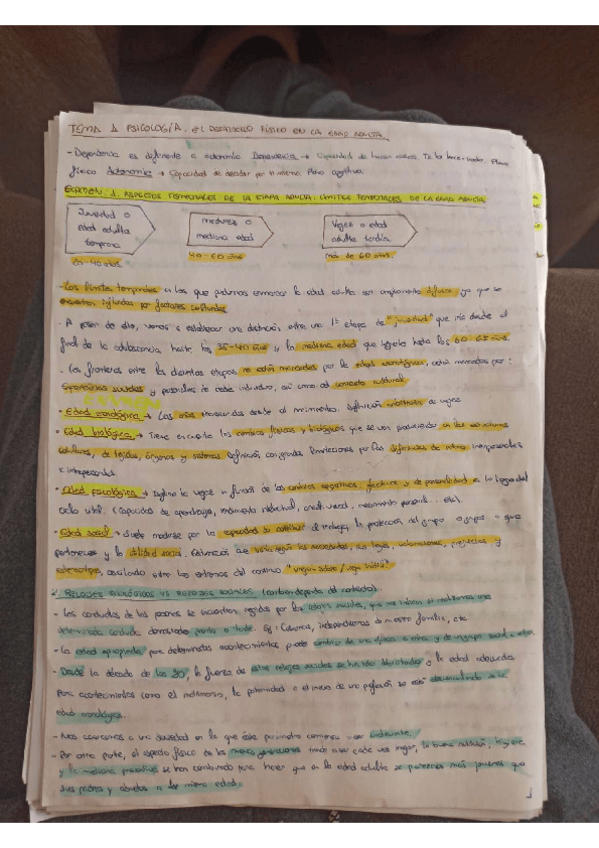 TEMA 1 PSICOLOGÍA. EL DESARROLLO FÍSICO EN LA EDAD ADULTA
- Dependencia es diferente a autonomía Dependencia → Capacidad de hacer cosas. Plano
físico Autonomía → Capacidad de decidir por ti misma. Plano cognitivo.
EXAMEN. 1. ASPECTOS TEMPORALES DE LA ETAPA ADULTA: LÍMITES TEMPORALES DE LA EDAD ADULTA
Juventud o
edad adulta
temprana
madurez o
mediana edad
Vejez o edad
adulta tardía
40-60 años
más de 60 años.
- Los límites temporales en los que podríamos enmarcar la edad adulta son ampliamente difusos ya que se
encuentran influidos por factores culturales
- A pesar de ello, vamos a establecer una distinción entre una 1ª etapa de "juventud" que iría desde el
final de la adolescencia hasta los 35-40 años y la mediana edad que llegaría hasta los 60-65 años.
- Las fronteras entre las distintas etapas no están marcadas por la edad cronológica, están marcadas por:
experiencias sociales y personales de cada individuo, así como el contexto cultural.
EXAMEN
- Edad cronológica → Los años transcurridos desde el nacimiento. Definición arbitraria de vejez
- Edad biológica → Tiene en cuenta los cambios físicos y biológicos que se van produciendo en las estructuras
celulares, de tejidos, órganos y sistemas. Definición con grandes limitaciones por las diferencias de ritmo interpersonales
e intrapersonales.
- Edad psicológica → Define la vejez en función de los cambios cognitivos, afectivos y de personalidad a lo largo del
ciclo vital. (Capacidad de aprendizaje, rendimiento intelectual, creatividad, crecimiento personal... etc).
- Edad social → Suele medirse por la capacidad de contribuir al trabajo, la protección del grupo o grupos a que
pertenecemos y la utilidad social. Estimación que varía según las sociedades, sus leyes, valoraciones, prejuicios y
estereotipos, oscilando entre los extremos del continuo "viejo-sabio/viejo inútil"
2. RELOJES BIOLÓGICOS VS RELOJES SOCIALES
- Las conductas de las personas se encuentran regidas por los relojes sociales, que nos indican si realizamos una
determinada conducta demasiado pronto o tarde. Ej: Casarnos, independizarnos de nuestra familia, etc.
- La edad apropiada para determinados acontecimientos puede cambiar de una época a otra y de un grupo social a otro.
- Desde la década de los 80, la fuerza de estos relojes sociales se ha ido debilitando o la edad adecuada
para acontecimientos como el matrimonio, la paternidad o el inicio de una profesión se está desvinculando de la
edad cronológica.
- Nos acercamos a una sociedad en la que este parámetro comienza a ser irrelevante.
- Por otra parte, el aspecto físico de las nuevas generaciones es cada vez mejor, la buena nutrición, higiene
y la medicina preventiva se han combinado para hacer que en la edad adulta se parezcan más jóvenes que
sus padres y abuelos a la misma edad.